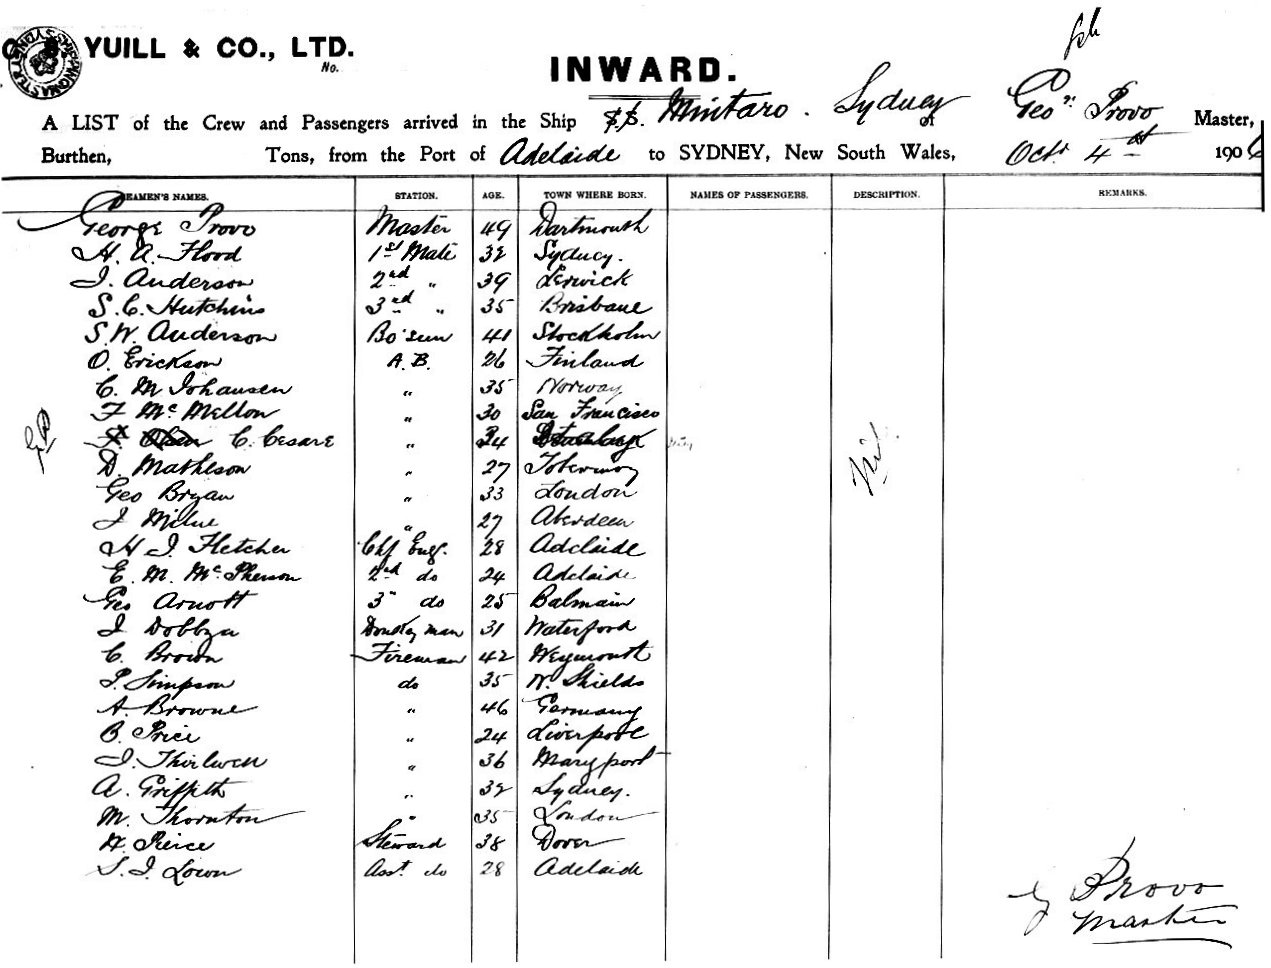 YUILL & CO., LTD.
No.
INWARD.
A LIST of the Crew and Passengers arrived in the Ship S.S. Mintaro. Sydney of Geo. Provo Master,
Burthen, Tons, from the Port of Adelaide to SYDNEY, New South Wales, Oct. 4th 1906
SEAMEN'S NAMES. STATION. AGE. TOWN WHERE BORN. NAMES OF PASSENGERS. DESCRIPTION. REMARKS.
George Provo Master 49 Dartmouth
H. A. Flood 1st Mate 32 Sydney.
J. Anderson 2nd " 39 Lerwick
S. C. Hutchins 3rd " 35 Brisbane
S. W. Anderson Bo'sun 41 Stockholm
O. Erickson A.B. 26 Finland
C. M Johansen " 35 Norway
F McMellon " 30 San Francisco
C. Cesare " 34
D. Matheson " 27 Tobermoy
Geo Bryan " 33 London
J Milne " 27 Aberdeen
H J. Fletcher Chf Eng. 28 Adelaide
E. M. McPherson 2nd do 24 Adelaide
Geo Arnott 3" do 25 Balmain
J Dobbyn Donkeyman 31 Waterford
C. Brown Fireman 42 Weymouth
P. Simpson do 35 N. Shields
A. Browne " 46 Germany
B. Price " 24 Liverpool
J. Thirlwell " 36 Maryport
A. Griffith " 32 Sydney.
M. Thornton " 35 London
H. Pierce Steward 38 Dover
S. J. Lown Asst. do 28 Adelaide
Nil.
G Provo
Master